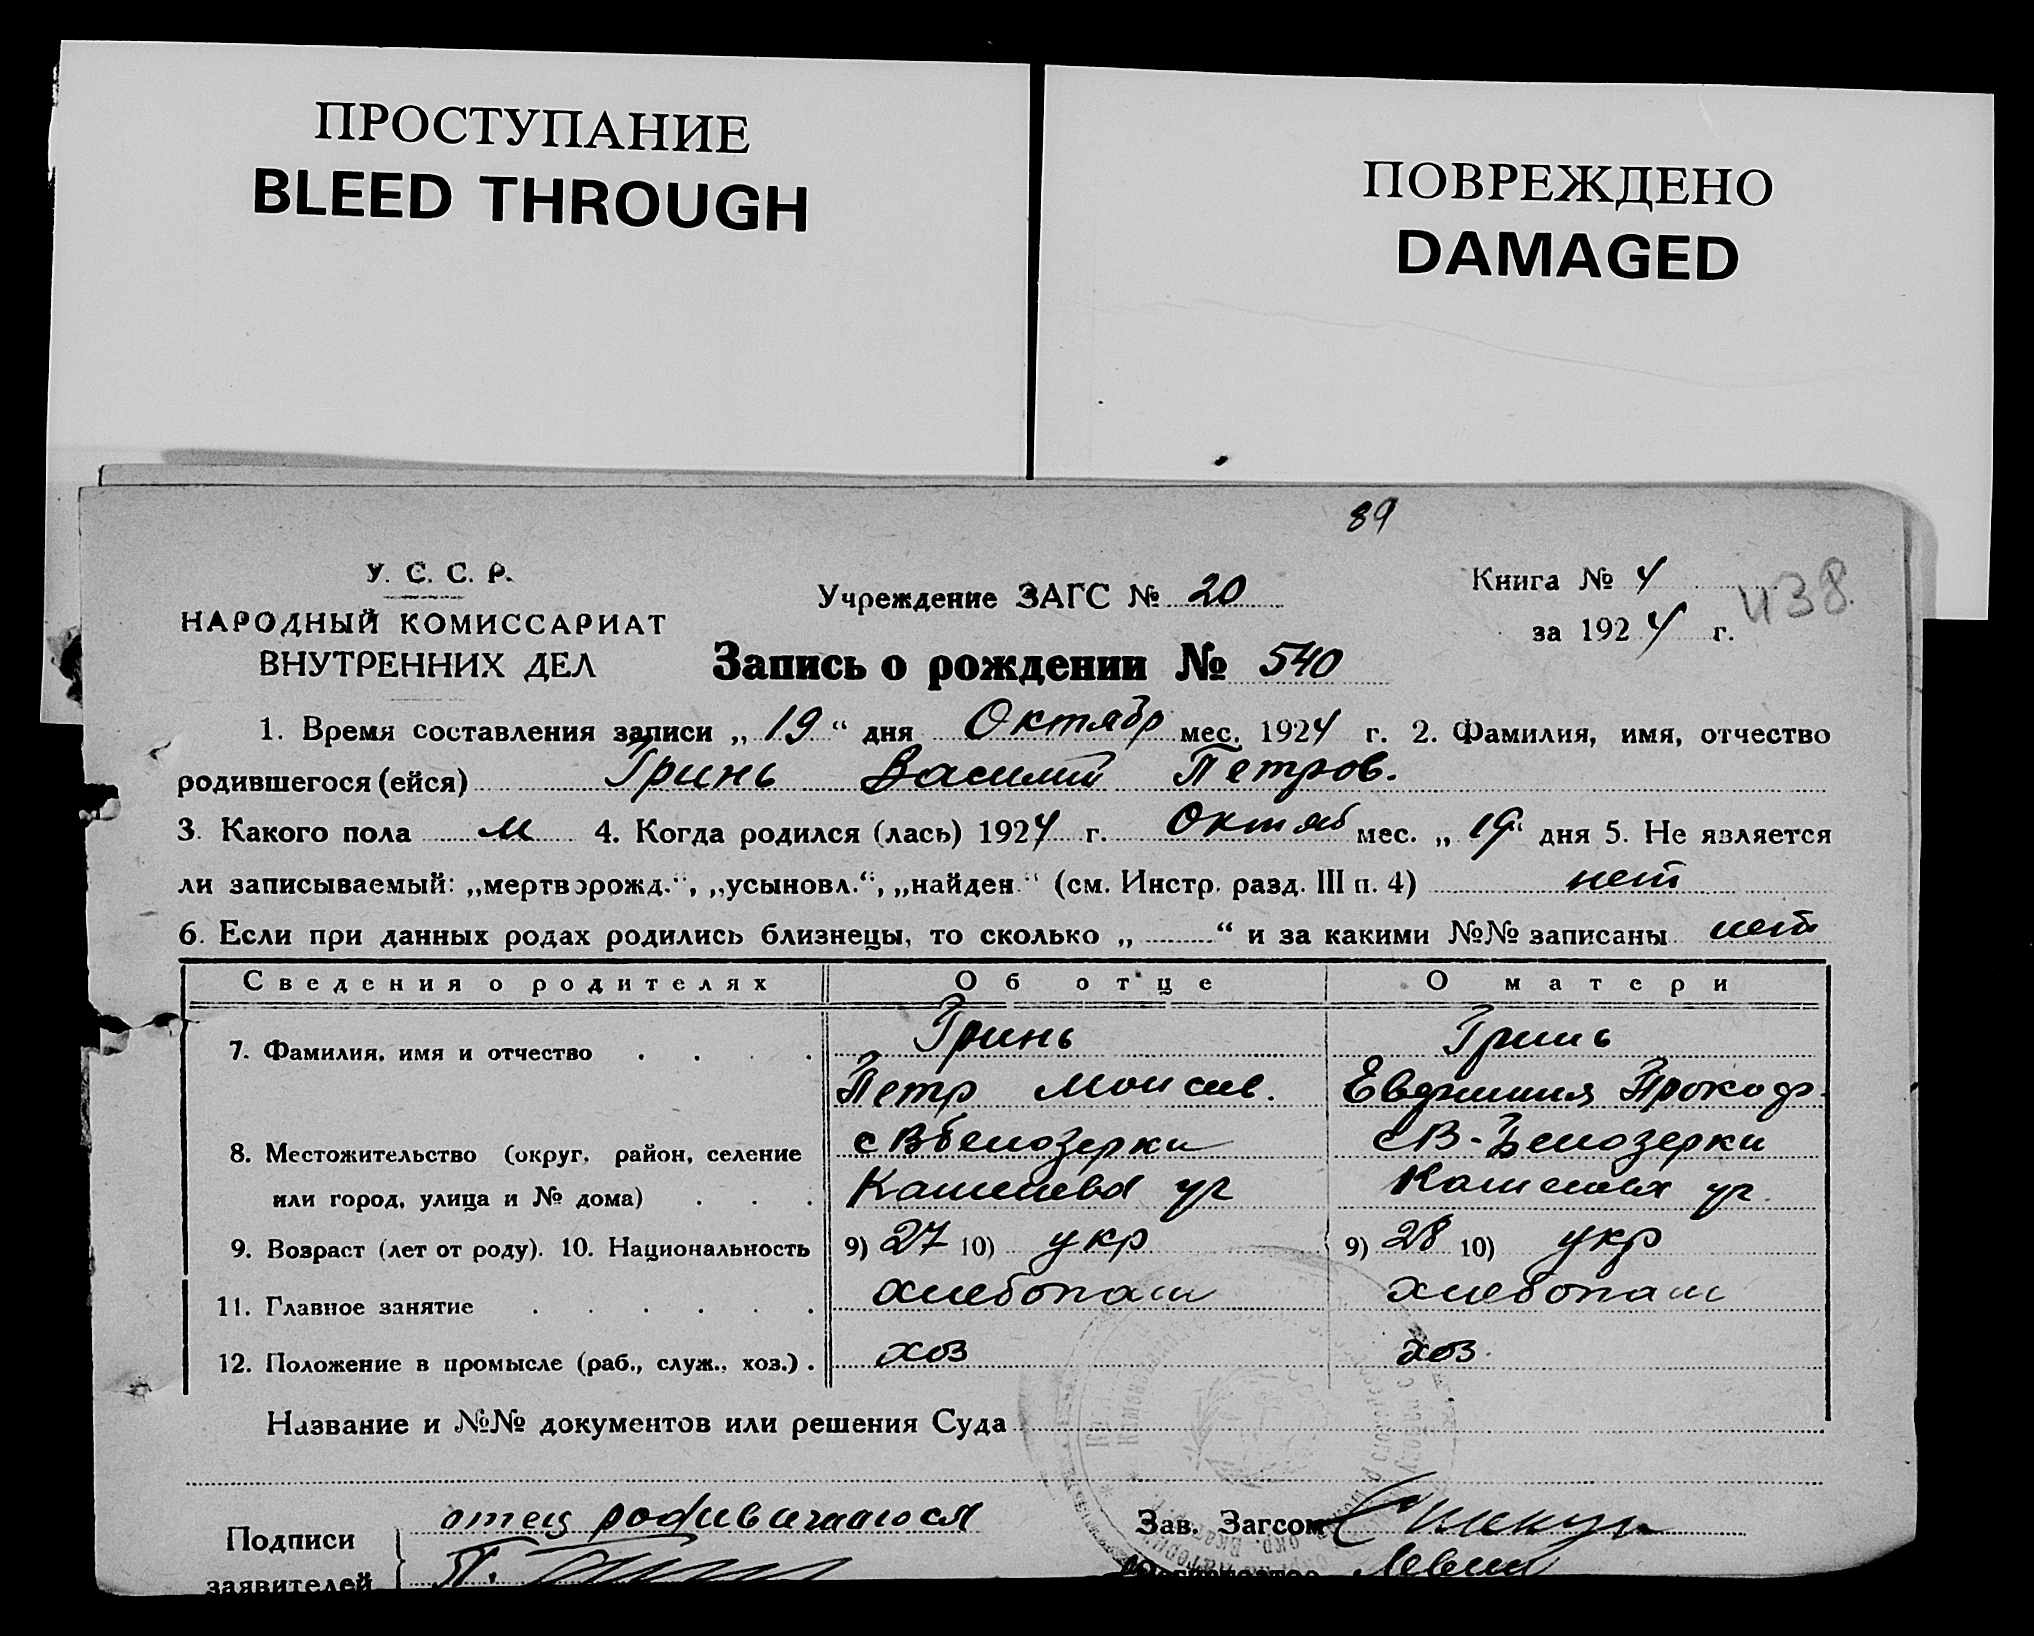 ПРОСТУПАНИЕ
BLEED THROUGH
ПОВРЕЖДЕНО
DAMAGED
89
У. С. С. Р.
НАРОДНЫЙ КОМИССАРИАТ
ВНУТРЕННИХ ДЕЛ
Учреждение ЗАГС № 20
Книга № 4
438
за 1924 г.
Запись о рождении № 540
1. Время составления записи „ 19 “ дня Октябр мес. 1924 г. 2. Фамилия, имя, отчество
родившегося (ейся) Гринь Василий Петров.
3. Какого пола м 4. Когда родился (лась) 1924 г. Октяб мес. „ 19 “ дня 5. Не является
ли записываемый: „мертворожд.“, „усыновл.“, „найден.“ (см. Инстр. разд. III п. 4) нет
6. Если при данных родах родились близнецы, то сколько „ “ и за какими №№ записаны нет
Сведения о родителях Об отце О матери
7. Фамилия, имя и отчество . . . . Гринь Гринь
Петр Моисев. Евдокиия Прокоф.
8. Местожительство (округ, район, селение с В Белозерки с В-Белозерки
или город, улица и № дома) . . .
9. Возраст (лет от роду). 10. Национальность 9) 27 10) укр 9) 28 10) укр
11. Главное занятие . . . . . . хлебопаш хлебопаш
12. Положение в промысле (раб., служ., хоз.) . хоз хоз.
Название и №№ документов или решения Суда
Подписи
заявителей
отец родившагося
П.
Зав. Загсом